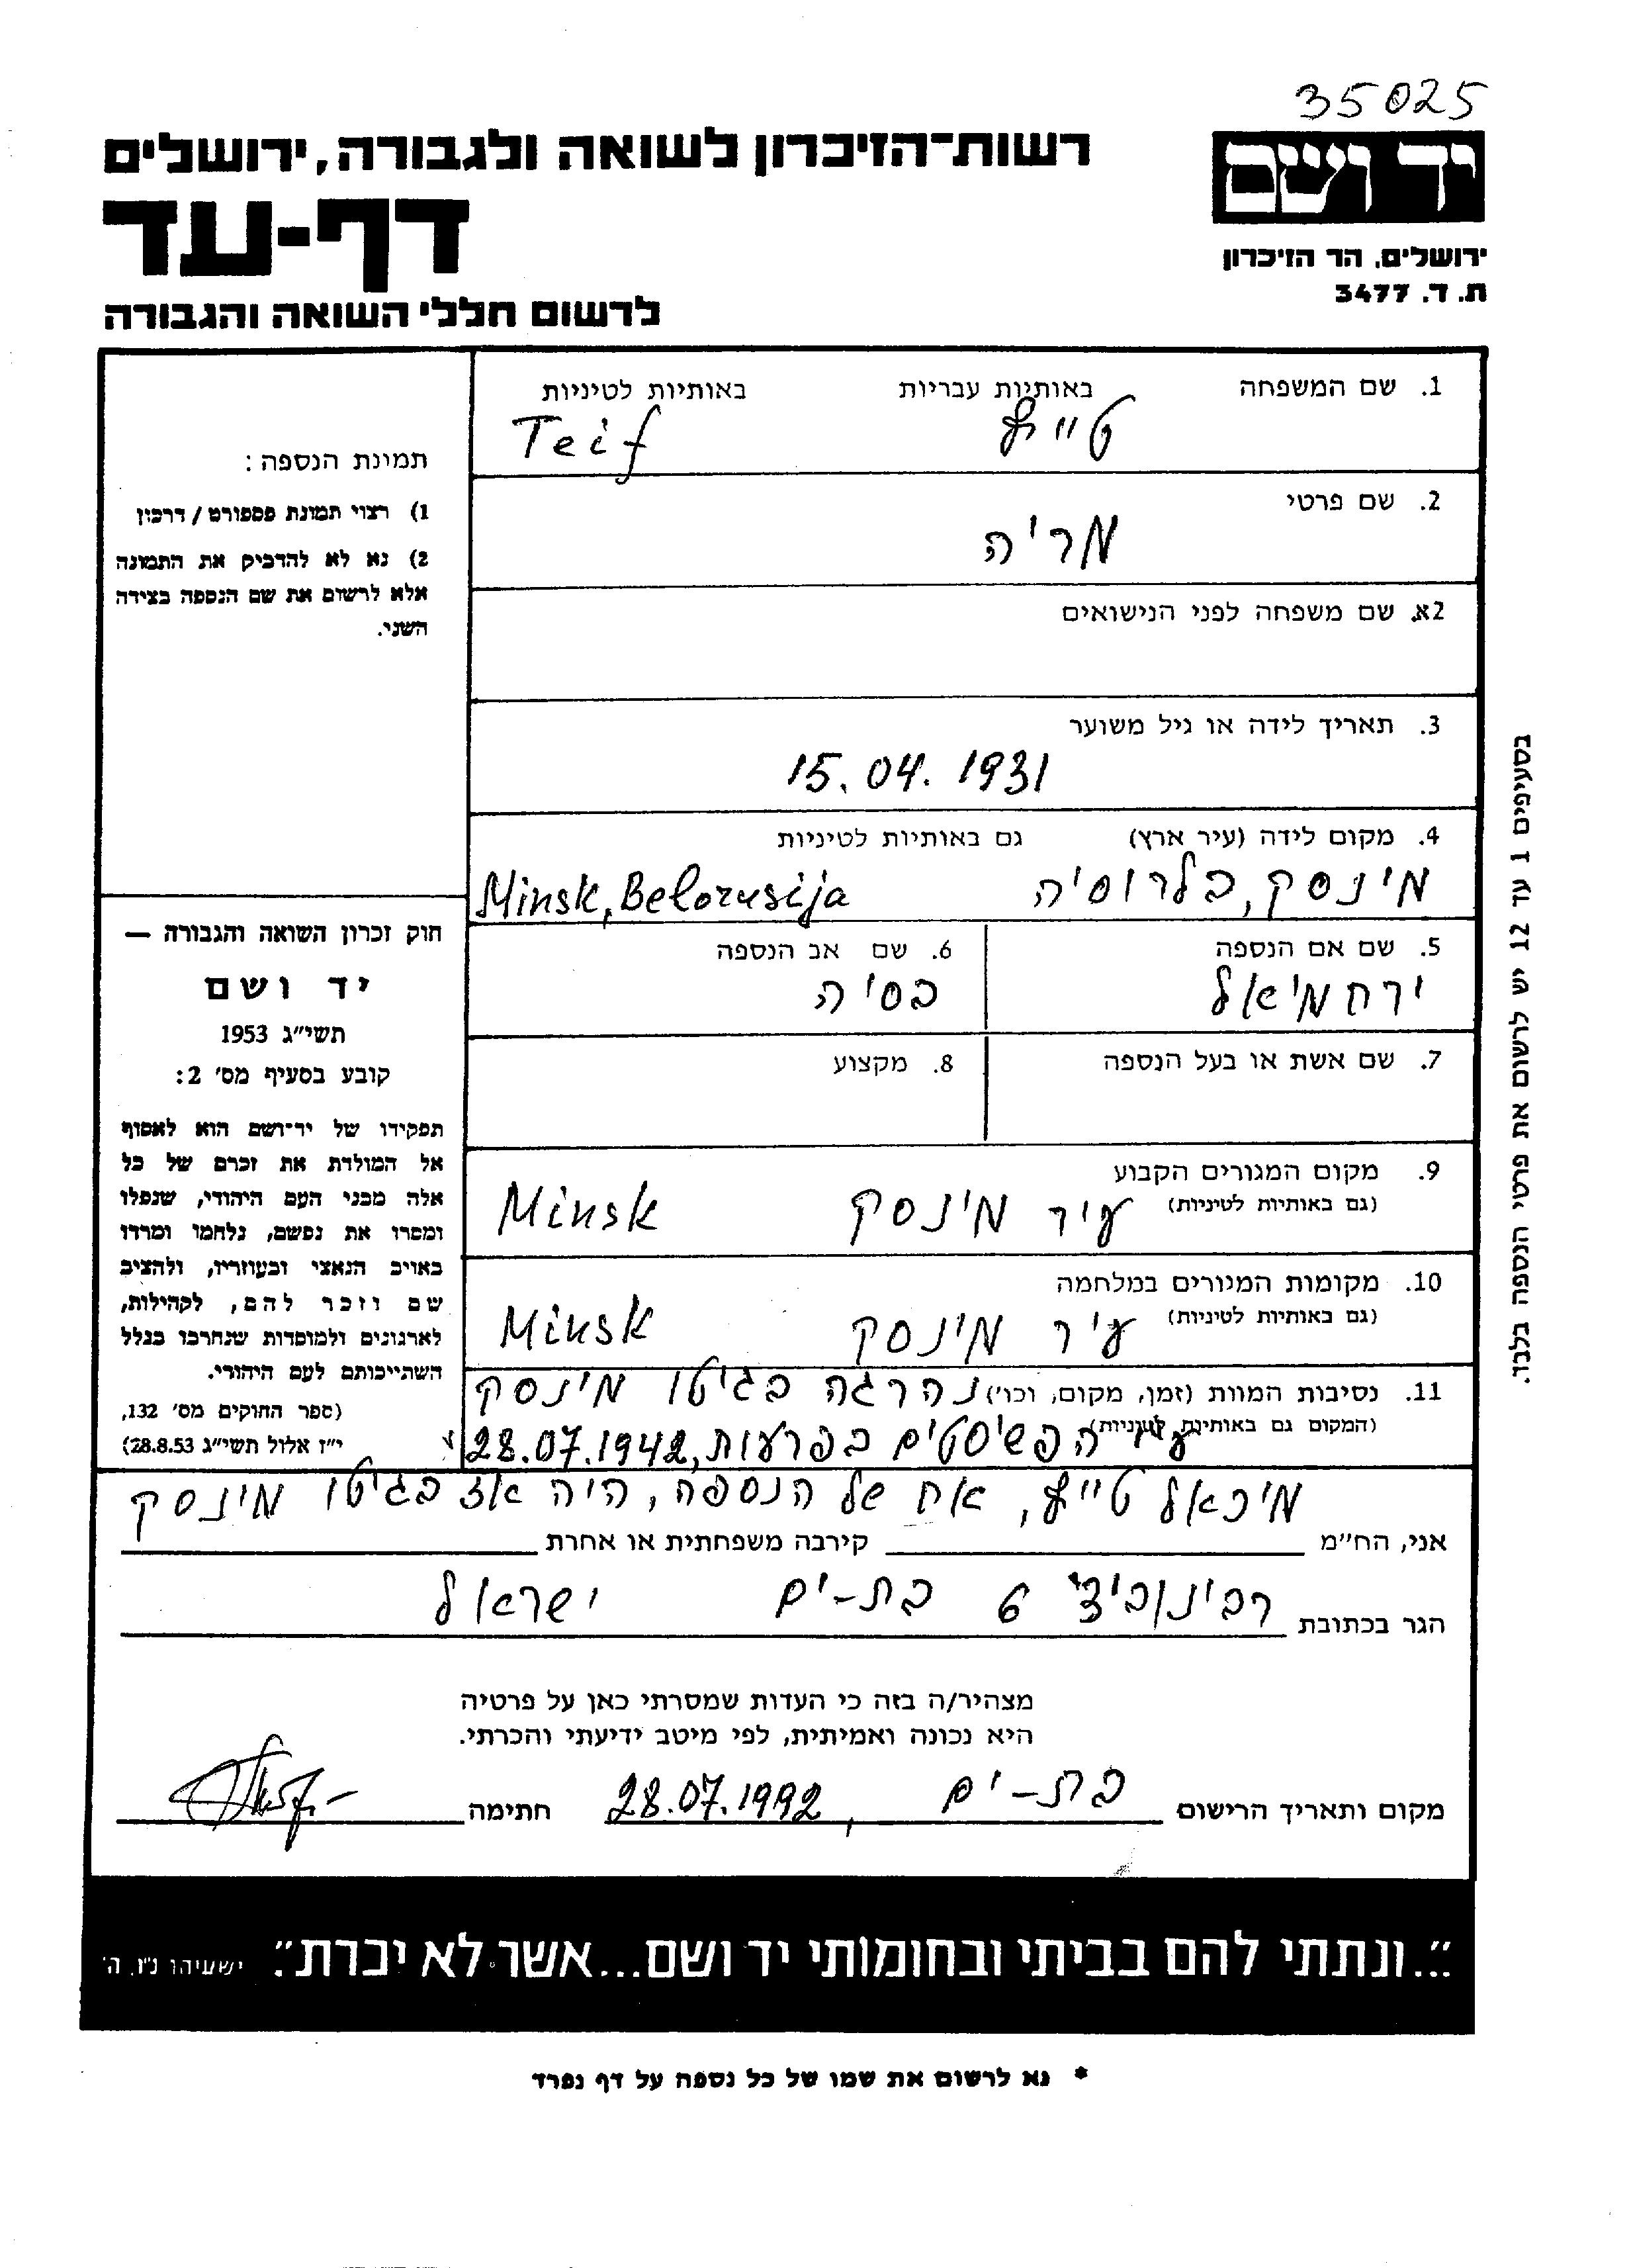 35025
יד ושם
ירושלים, הר הזיכרון
ת. ד. 3477
רשות־הזיכרון לשואה ולגבורה, ירושלים
דף-עד
לרשום חללי השואה והגבורה
1. שם המשפחה באותיות עבריות באותיות לטיניות
טייף Teif
2. שם פרטי
מריה
2א. שם משפחה לפני הנישואים
3. תאריך לידה או גיל משוער
15.04.1931
4. מקום לידה (עיר ארץ) גם באותיות לטיניות
מינסק, בלרוסיה Minsk, Belorusija
5. שם אם הנספה 6. שם אב הנספה
ירחמיאל בסיה
7. שם אשת או בעל הנספה 8. מקצוע
9. מקום המגורים הקבוע
(גם באותיות לטיניות) עיר מינסק Minsk
10. מקומות המגורים במלחמה
(גם באותיות לטיניות) עיר מינסק Minsk
11. נסיבות המוות (זמן, מקום, וכו') נהרגה בגיטו מינסק
(המקום גם באותיות לטיניות) ע"י הפשיסטים בפרעות, 28.07.1942
תמונת הנספה:
1) רצוי תמונת פספורט / דרכון
2) נא לא להדביק את התמונה
אלא לרשום את שם הנספה בצידה
השני.
חוק זכרון השואה והגבורה —
יד ושם
תשי״ג 1953
קובע בסעיף מס׳ 2:
תפקידו של יד־ושם הוא לאסוף
אל המולדת את זכרם של כל
אלה מבני העם היהודי, שנפלו
ומסרו את נפשם, נלחמו ומרדו
באויב הנאצי ובעוזריו, ולהציב
שם וזכר להם, לקהילות,
לארגונים ולמוסדות שנחרבו בגלל
השתייכותם לעם היהודי.
(ספר החוקים מס׳ 132,
י״ז אלול תשי״ג 28.8.53)
בסעיפים 1 עד 12 יש לרשום את פרטי הנספה בלבד.
מיכאל טייף, אח של הנספה, היה אז בגיטו מינסק
אני, הח״מ קירבה משפחתית או אחרת
הגר בכתובת רבינוביץ' 6 בת-ים ישראל
מצהיר/ה בזה כי העדות שמסרתי כאן על פרטיה
היא נכונה ואמיתית, לפי מיטב ידיעתי והכרתי.
מקום ותאריך הרישום בת-ים, 28.07.1992 חתימה
״...ונתתי להם בביתי ובחומותי יד ושם...אשר לא יכרת״. ישעיהו נ״ו, ה׳
* נא לרשום את שמו של כל נספה על דף נפרד